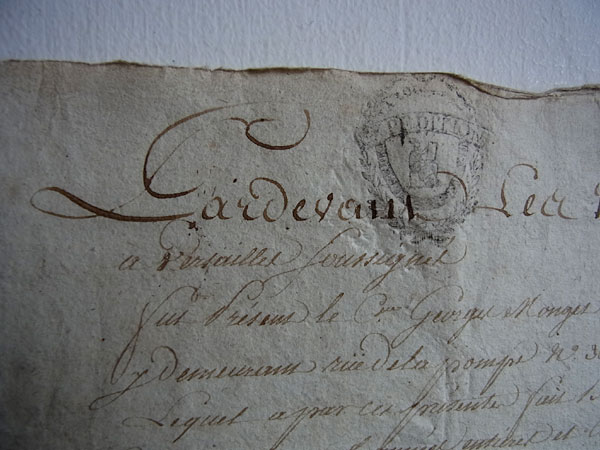 Pardevant Les
a Versailles Soussignés
fut Présent le Cen Georges Monges
y demeurant rüe de la pompe No. 3
Lequel a par ces présente fait